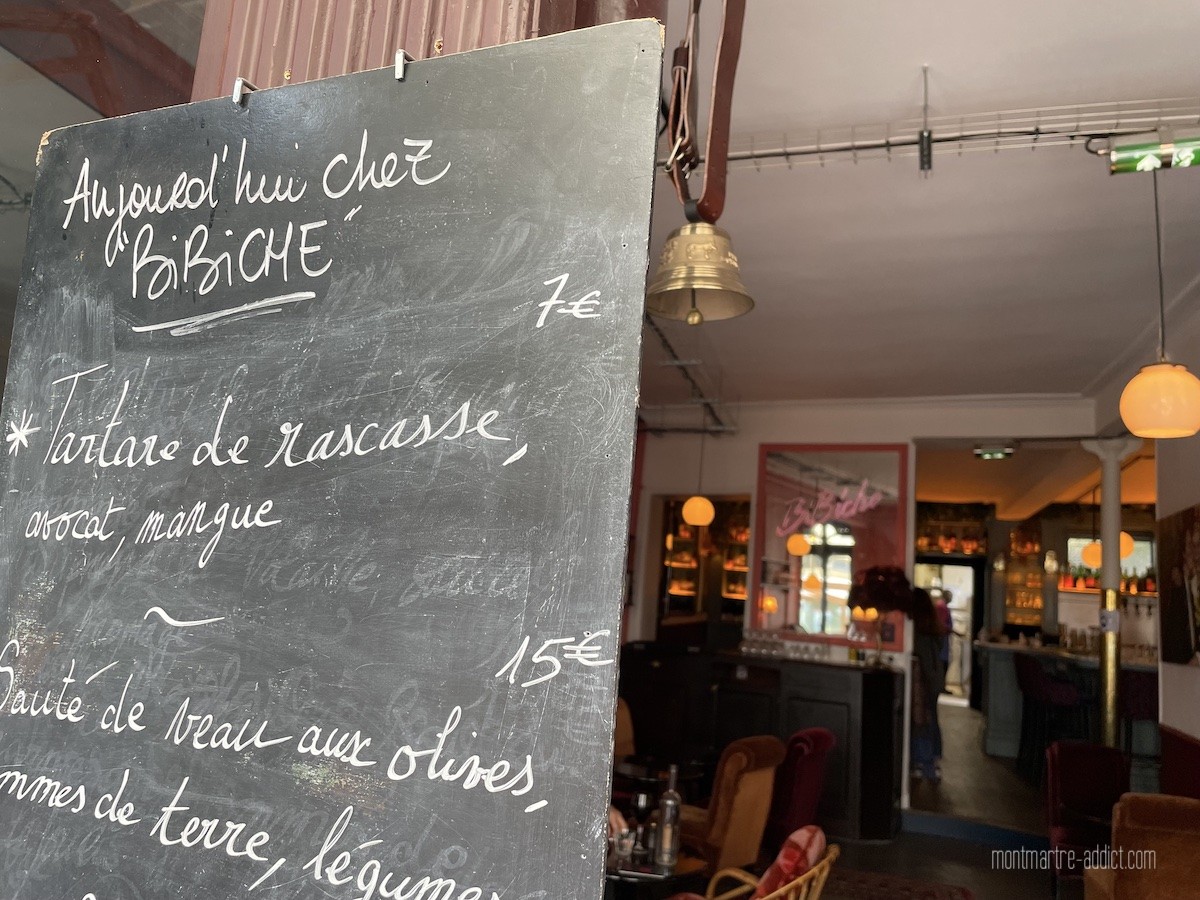 Aujourd'hui chez
"BiBiCHE"
7€
* Tartare de rascasse,
avocat, mangue
~
15€
Sauté de veau aux olives,
mmes de terre, légumes
BiBiche
montmartre-addict.com